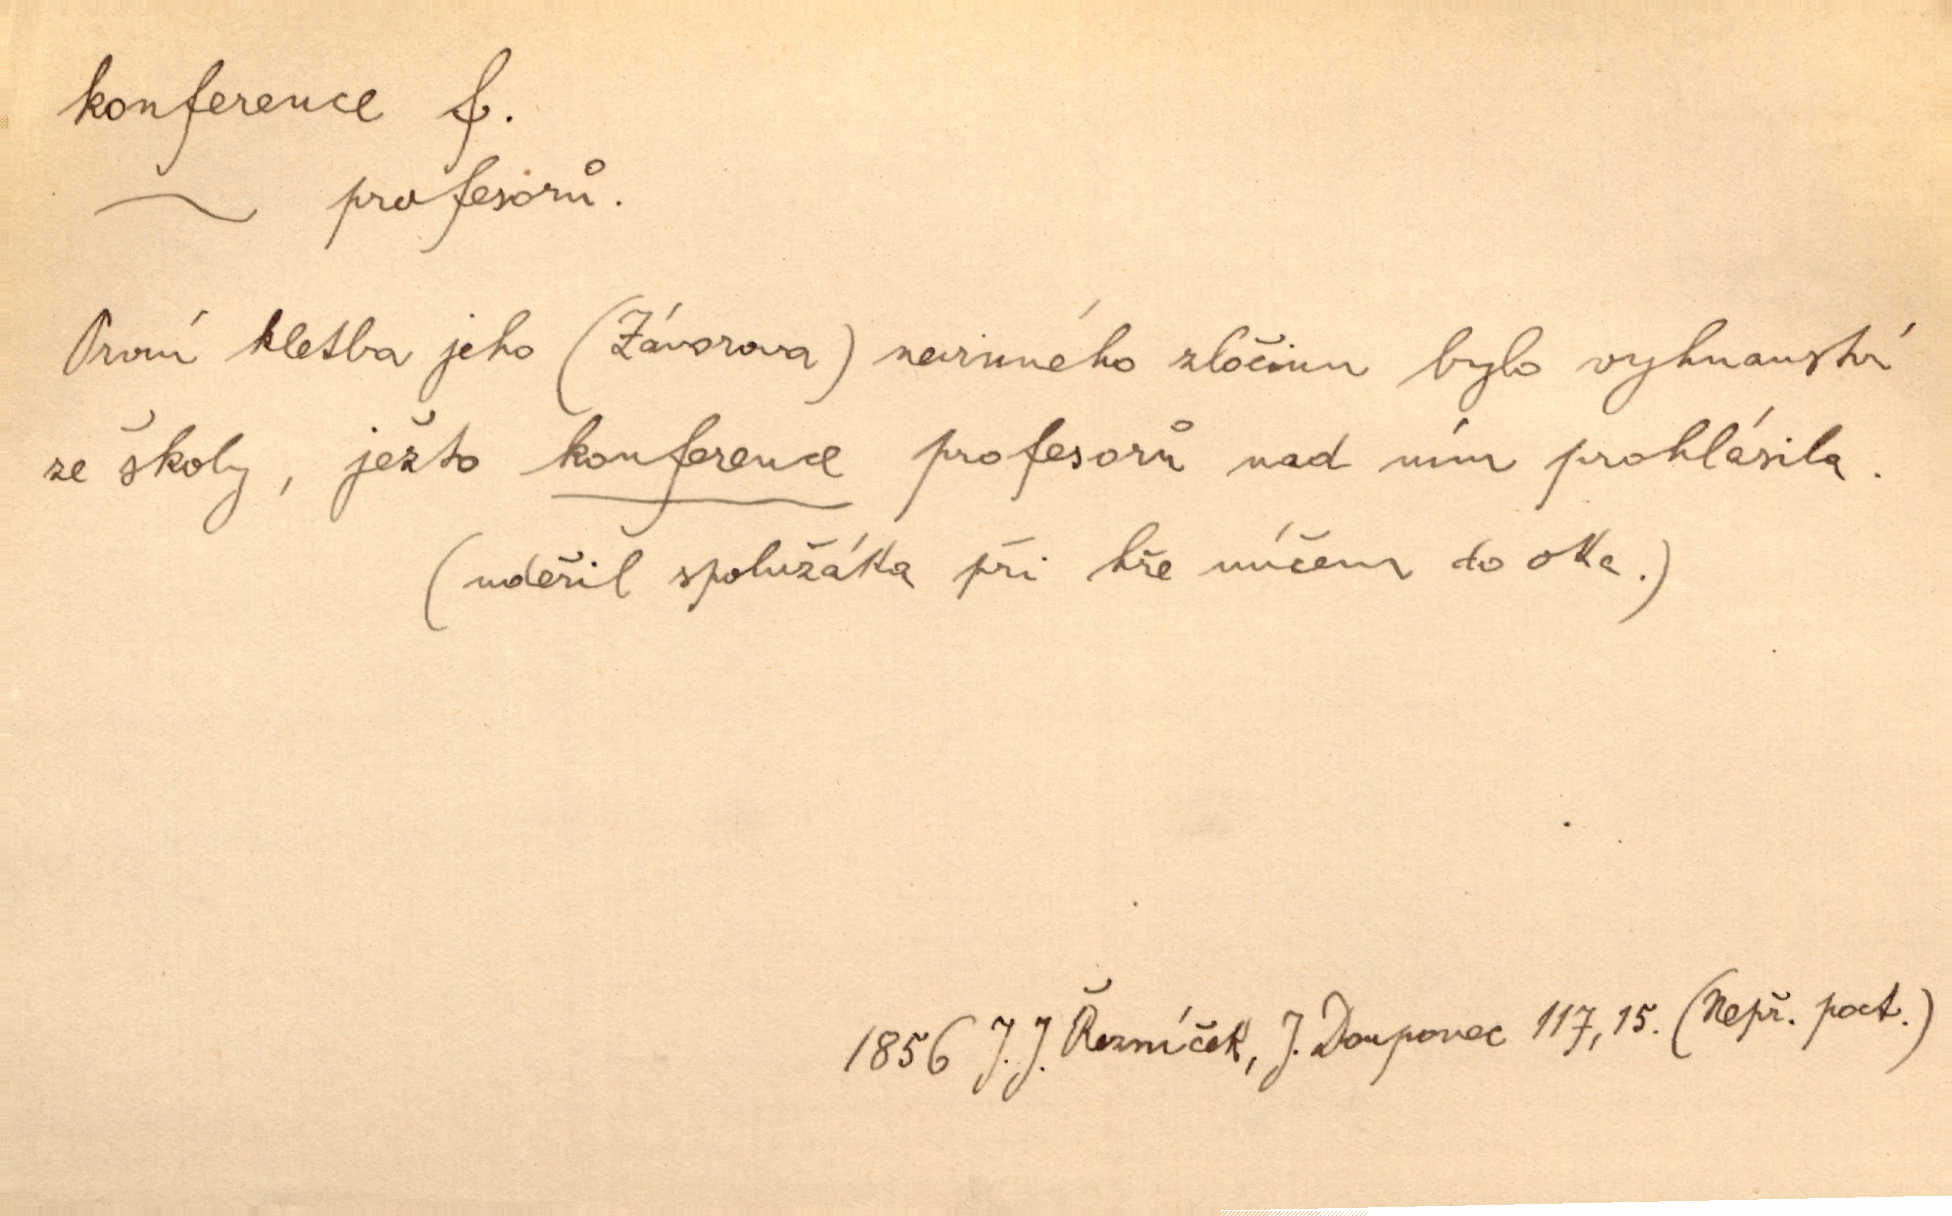 konference f.
~ profesorů.
První kletba jeho (Závorova) nevinného zločinu bylo vyhnanství
ze školy, ježto konference profesorů nad ním prohlásila.
(udeřil spolužáka při hře míčem do oka.)
1856 J. J. Řezníček, J. Doupovec 117, 15. (Nepř. poct.)